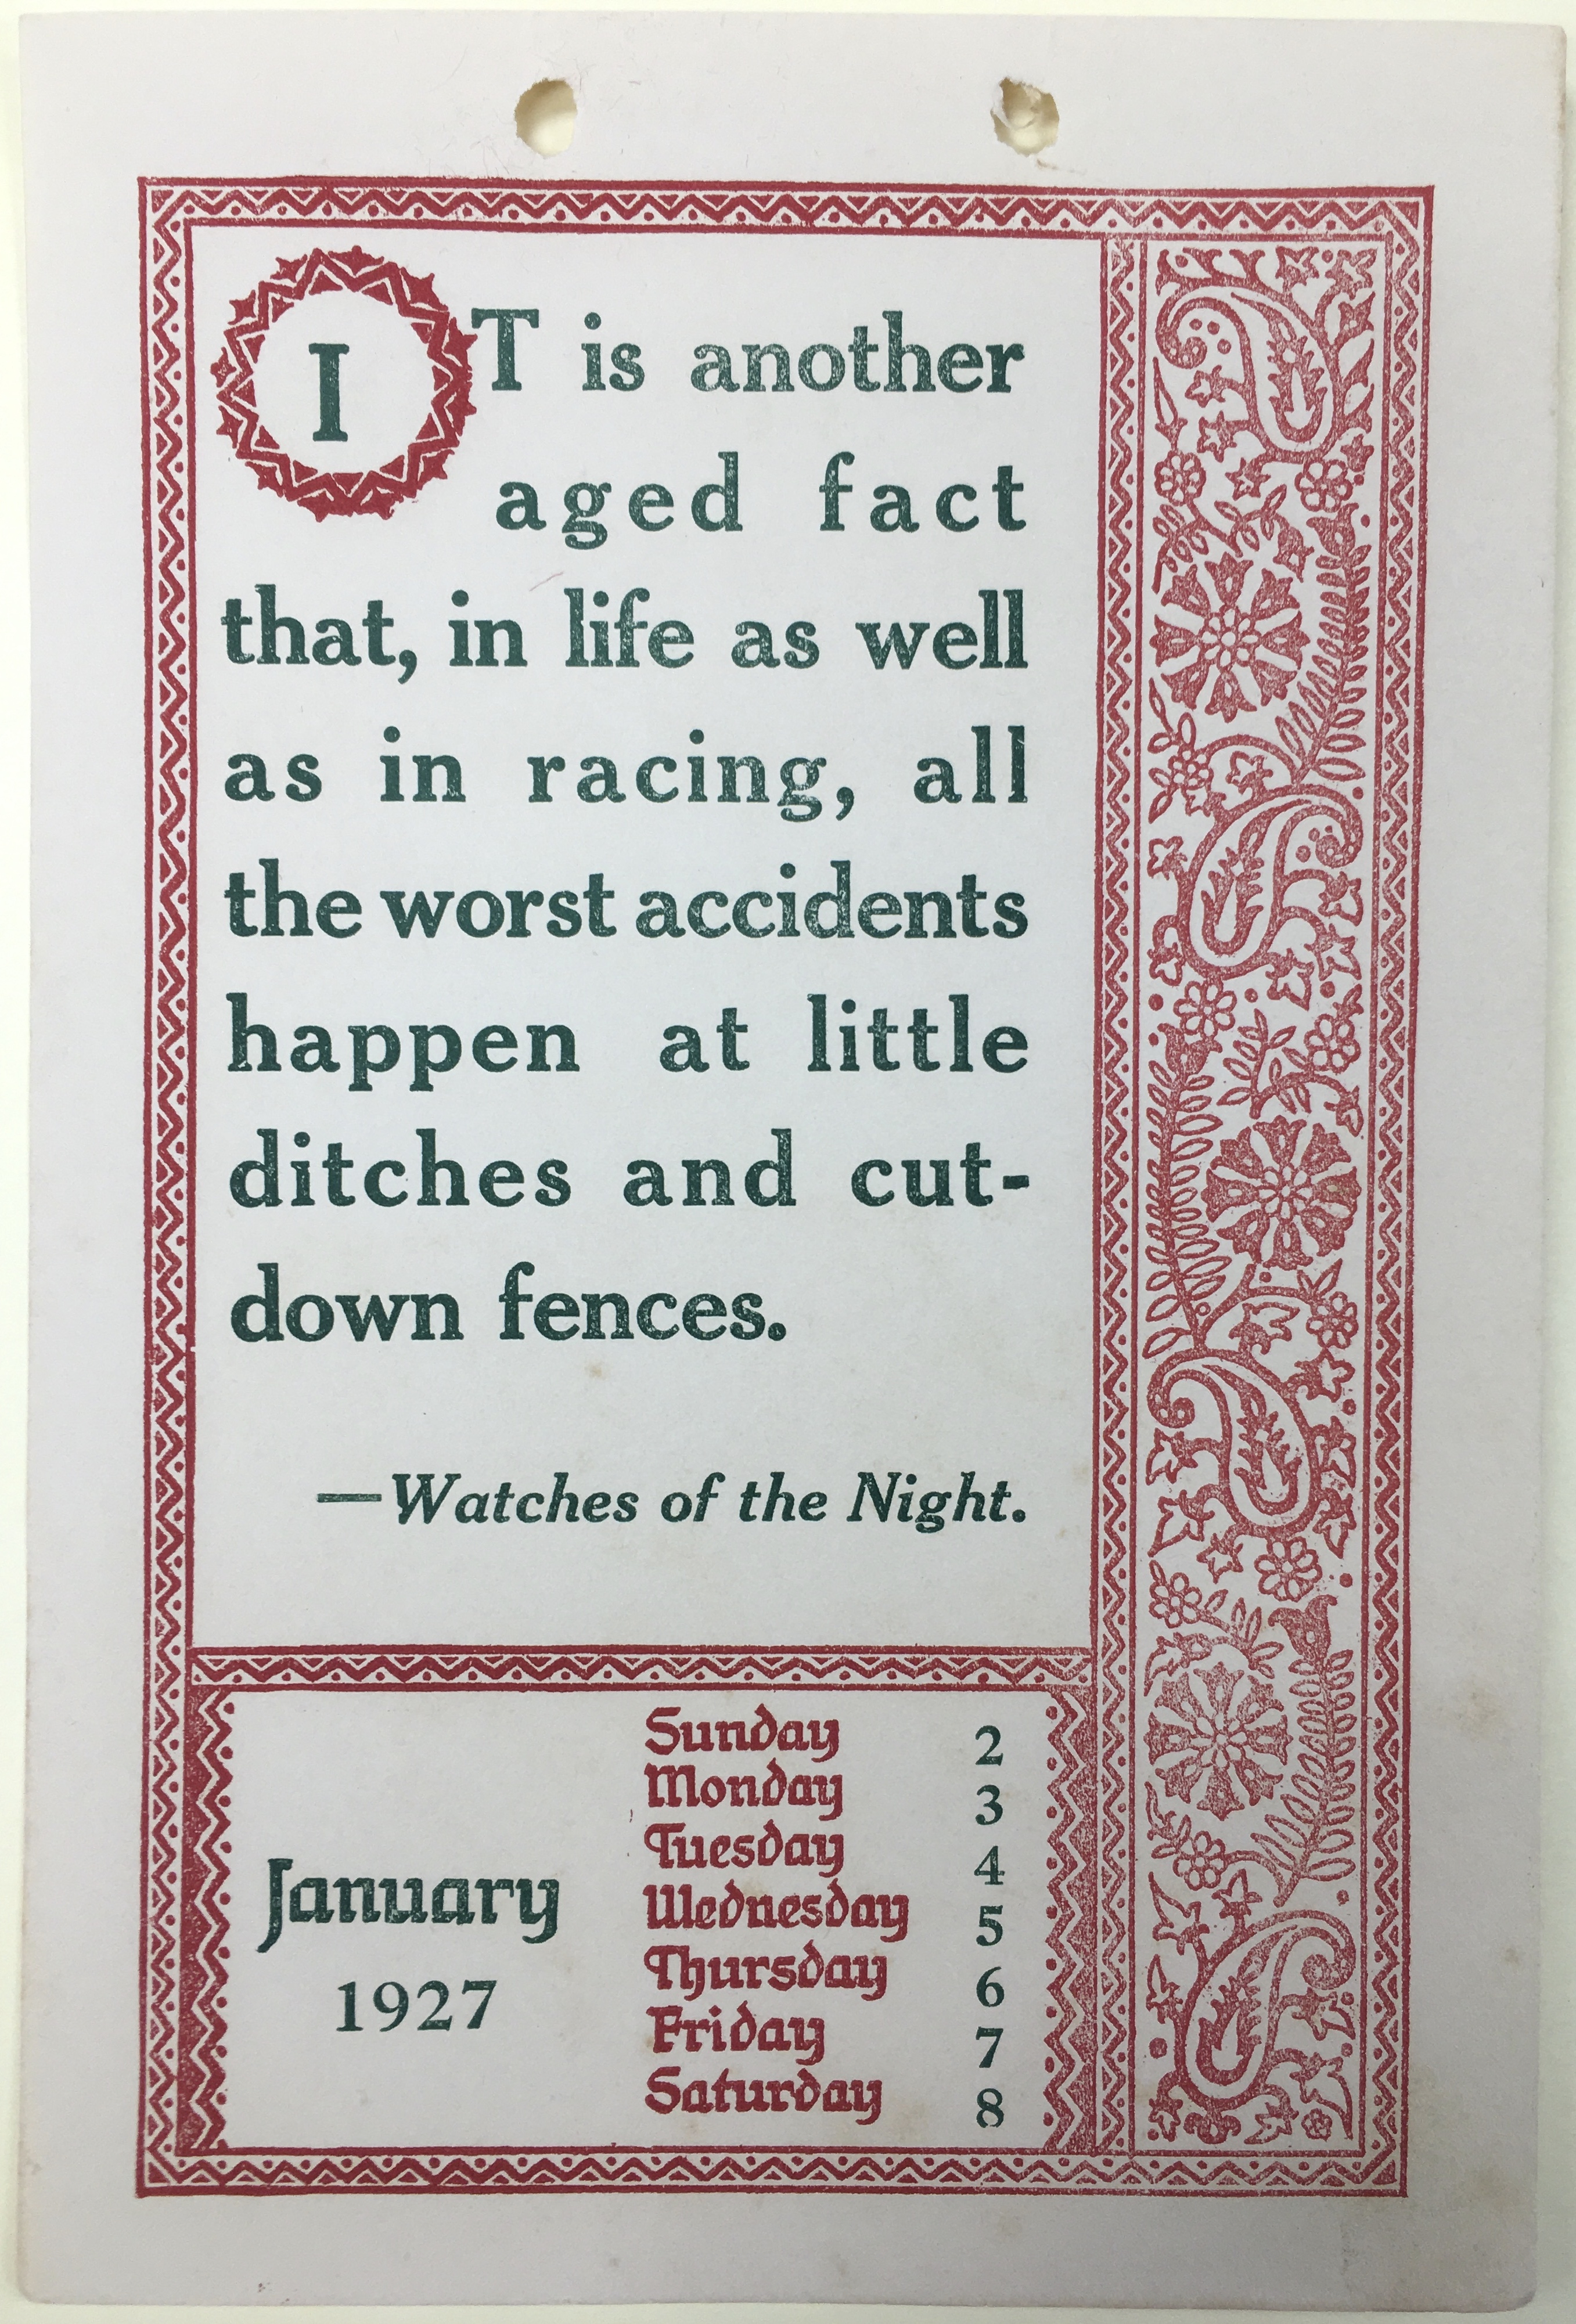 IT is another
aged fact
that, in life as well
as in racing, all
the worst accidents
happen at little
ditches and cut-
down fences.
—Watches of the Night.
January
1927
Sunday 2
Monday 3
Tuesday 4
Wednesday 5
Thursday 6
Friday 7
Saturday 8